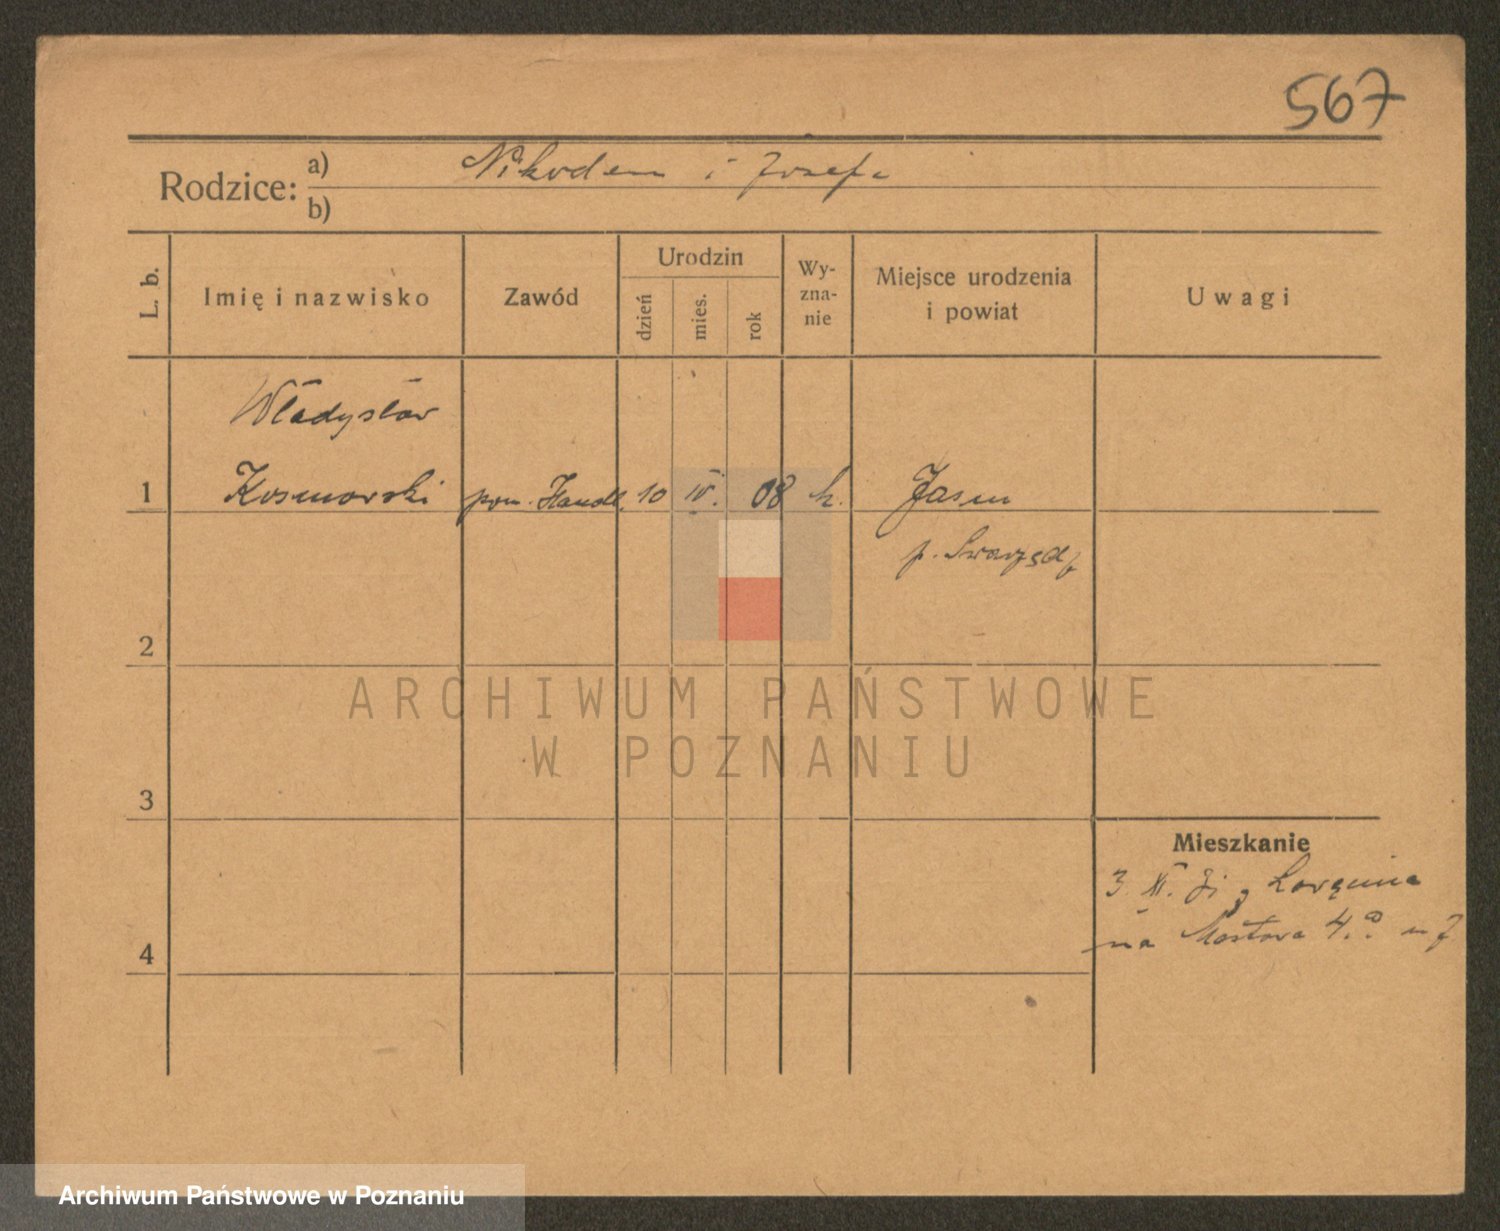 567
Rodzice: a) Nikodem i Józefa
b)
L. b. Imię i nazwisko Zawód Urodzin dzień mies. rok Wy-zna-nie Miejsce urodzenia i powiat Uwagi
Władysław
1 Kosmowski pom. Handl. 10 IV. 08 k. Jasin
p. Swarzędz
2
ARCHIWUM PAŃSTWOWE
W POZNANIU
3
Mieszkanie
3. XI. z
4 na Mostowa 4. u
Archiwum Państwowe w Poznaniu